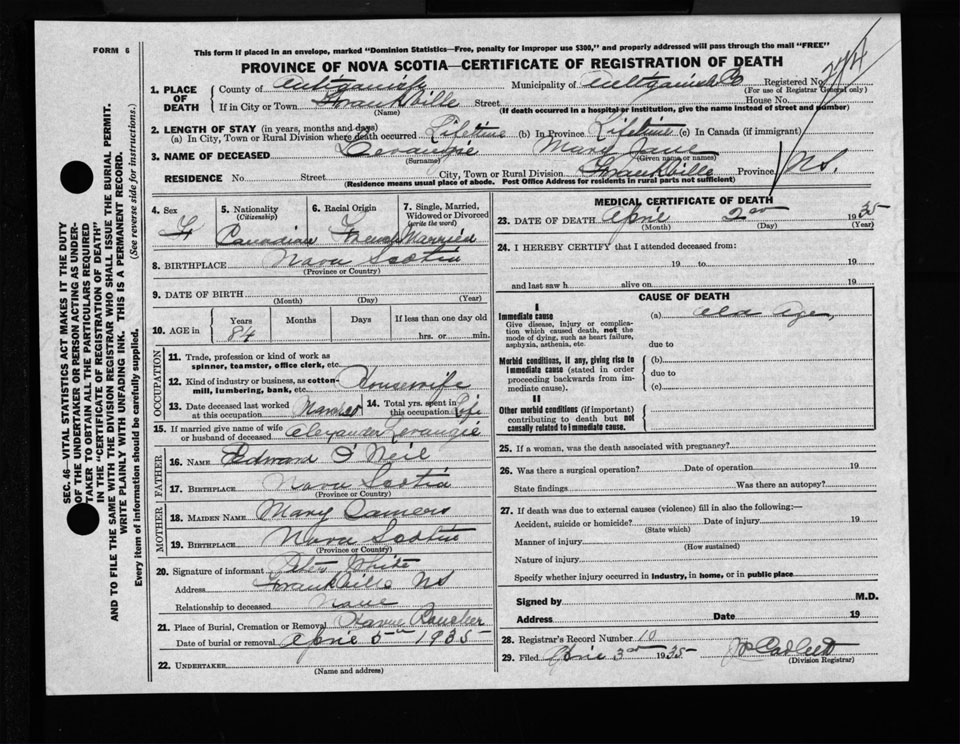 FORM 6
This form if placed in an envelope, marked "Dominion Statistics—Free, penalty for improper use $300," and properly addressed will pass through the mail "FREE"
PROVINCE OF NOVA SCOTIA—CERTIFICATE OF REGISTRATION OF DEATH
1. PLACE OF DEATH
County of Antigonish Municipality of Antigonish Co Registered No.
(For use of Registrar General only)
If in City or Town Frankville Street House No.
(Name) (If death occurred in a hospital or institution, give the name instead of street and number)
2. LENGTH OF STAY (in years, months and days)
(a) In City, Town or Rural Division where death occurred Lifetime (b) In Province Lifetime (c) In Canada (if immigrant)
3. NAME OF DECEASED Levangie Mary Jane
(Surname) (Given name or names)
RESIDENCE No. Street City, Town or Rural Division Frankville Province NS.
(Residence means usual place of abode. Post Office Address for residents in rural parts not sufficient)
4. Sex F
5. Nationality (Citizenship) Canadian
6. Racial Origin French
7. Single, Married, Widowed or Divorced (write the word) Married
8. BIRTHPLACE Nova Scotia
(Province or Country)
9. DATE OF BIRTH
(Month) (Day) (Year)
10. AGE in Years Months Days If less than one day old
84 hrs. or min.
OCCUPATION
11. Trade, profession or kind of work as spinner, teamster, office clerk, etc.
12. Kind of industry or business, as cotton-mill, lumbering, bank, etc. Housewife
13. Date deceased last worked at this occupation
14. Total yrs. spent in this occupation Life
15. If married give name of wife or husband of deceased Alexander Levangie
FATHER
16. NAME Edward O'Neil
17. BIRTHPLACE Nova Scotia
(Province or Country)
MOTHER
18. MAIDEN NAME Mary
19. BIRTHPLACE Nova Scotia
(Province or Country)
20. Signature of informant White
Address Frankville NS
Relationship to deceased None
21. Place of Burial, Cremation or Removal Havre Boucher
Date of burial or removal April 5th 1935
22. UNDERTAKER
(Name and address)
MEDICAL CERTIFICATE OF DEATH
23. DATE OF DEATH April 2nd 1935
(Month) (Day) (Year)
24. I HEREBY CERTIFY that I attended deceased from:
19 to 19
and last saw h alive on 19
CAUSE OF DEATH
I
Immediate cause
Give disease, injury or complication which caused death, not the mode of dying, such as heart failure, asphyxia, asthenia, etc.
(a) Old Age
due to
Morbid conditions, if any, giving rise to immediate cause (stated in order proceeding backwards from immediate cause).
(b)
due to
(c)
II
Other morbid conditions (if important) contributing to death but not causally related to immediate cause.
25. If a woman, was the death associated with pregnancy?
26. Was there a surgical operation? Date of operation 19
State findings Was there an autopsy?
27. If death was due to external causes (violence) fill in also the following:—
Accident, suicide or homicide? Date of injury 19
(State which)
Manner of injury
(How sustained)
Nature of injury
Specify whether injury occurred in industry, in home, or in public place
Signed by M.D.
Address Date 19
28. Registrar's Record Number 10
29. Filed April 3rd 1935
(Division Registrar)
SEC. 46—VITAL STATISTICS ACT MAKES IT THE DUTY
OF THE UNDERTAKER OR PERSON ACTING AS UNDER-
TAKER TO OBTAIN ALL THE PARTICULARS REQUIRED
IN THE "CERTIFICATE OF REGISTRATION OF DEATH"
AND TO FILE THE SAME WITH THE DIVISION REGISTRAR WHO SHALL ISSUE THE BURIAL PERMIT.
WRITE PLAINLY WITH UNFADING INK. THIS IS A PERMANENT RECORD.
Every item of information should be carefully supplied. (See reverse side for instructions.)